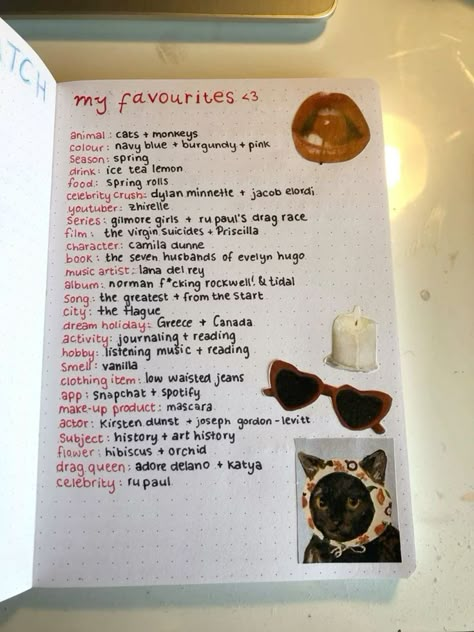 ATCH
my favourites <3
animal: cats + monkeys
colour: navy blue + burgundy + pink
season: spring
drink: ice tea lemon
food: spring rolls
celebrity crush: dylan minnette + jacob elordi
youtuber: zhirelle
series: gilmore girls + ru paul's drag race
film: the virgin suicides + Priscilla
character: camila dunne
book: the seven husbands of evelyn hugo
music artist: lana del rey
album: norman f*cking rockwell! & tidal
song: the greatest + from the start
city: the Hague
dream holiday: Greece + Canada
activity: journaling + reading
hobby: listening music + reading
smell: vanilla
clothing item: low waisted jeans
app: snapchat + spotify
make-up product: mascara
actor: kirsten dunst + joseph gordon-levitt
subject: history + art history
flower: hibiscus + orchid
drag queen: adore delano + katya
celebrity: ru paul